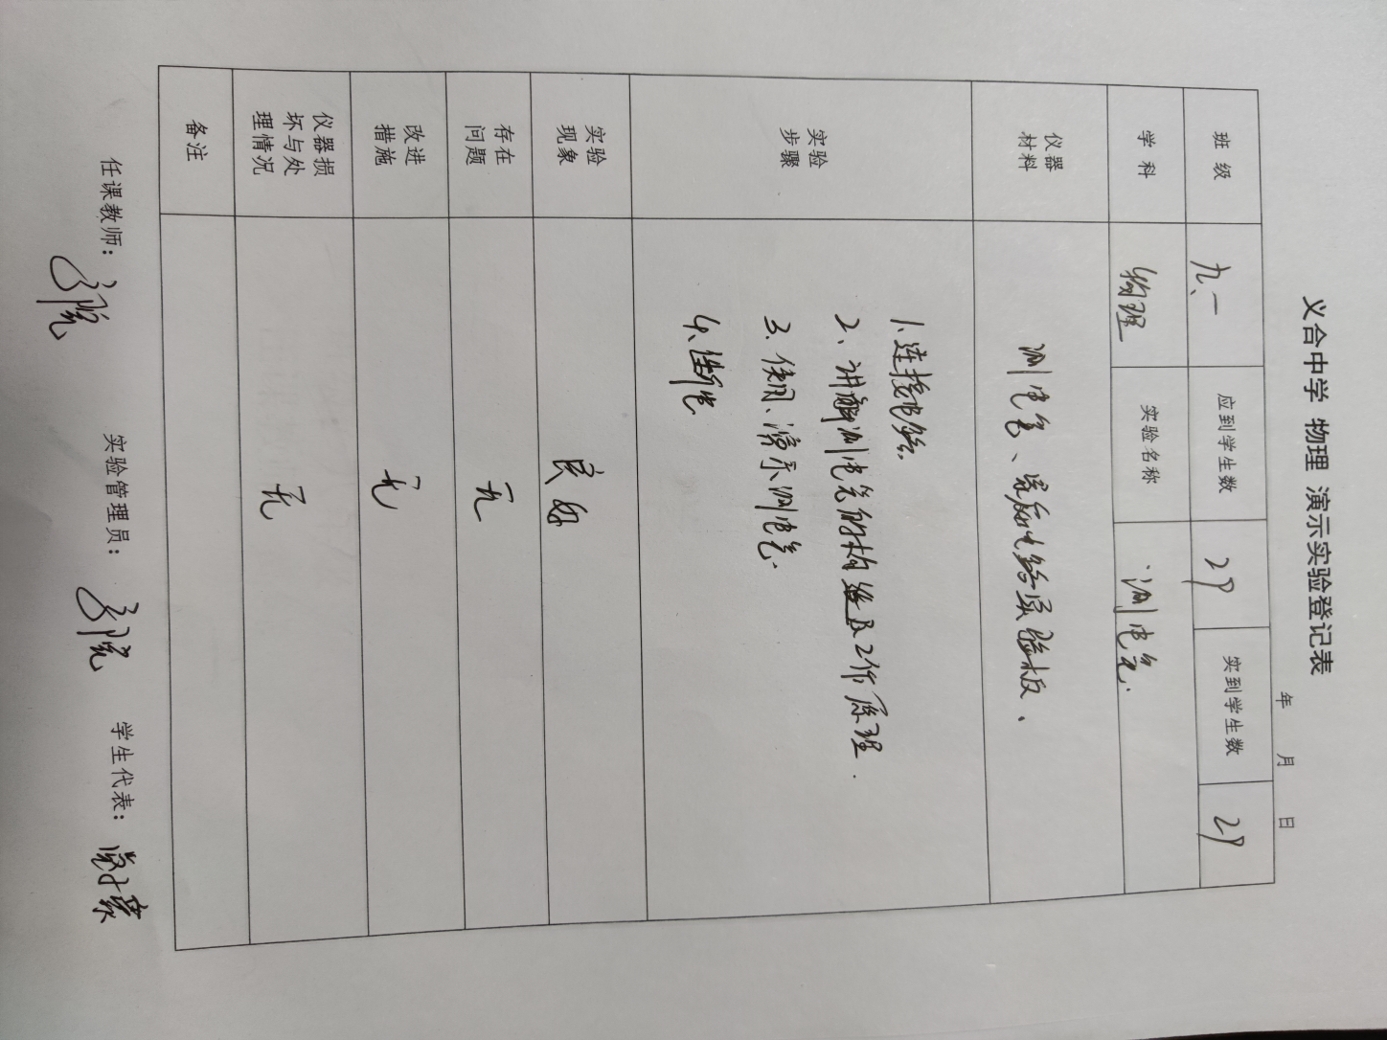 义合中学 物理 演示实验登记表
年 月 日
班级 九、一 应到学生数 29 实到学生数 29
学科 物理 实验名称 测电笔.
仪器
材料
测电笔、家庭电路实验板、
实验
步骤
1.连接电路.
2、讲解测电笔的构造及工作原理.
3.使用、演示测电笔.
4、断电
实验
现象
良好
存在
问题
无
改进
措施
无
仪器损
坏与处
理情况
无
备注
任课教师: 实验管理员: 学生代表: